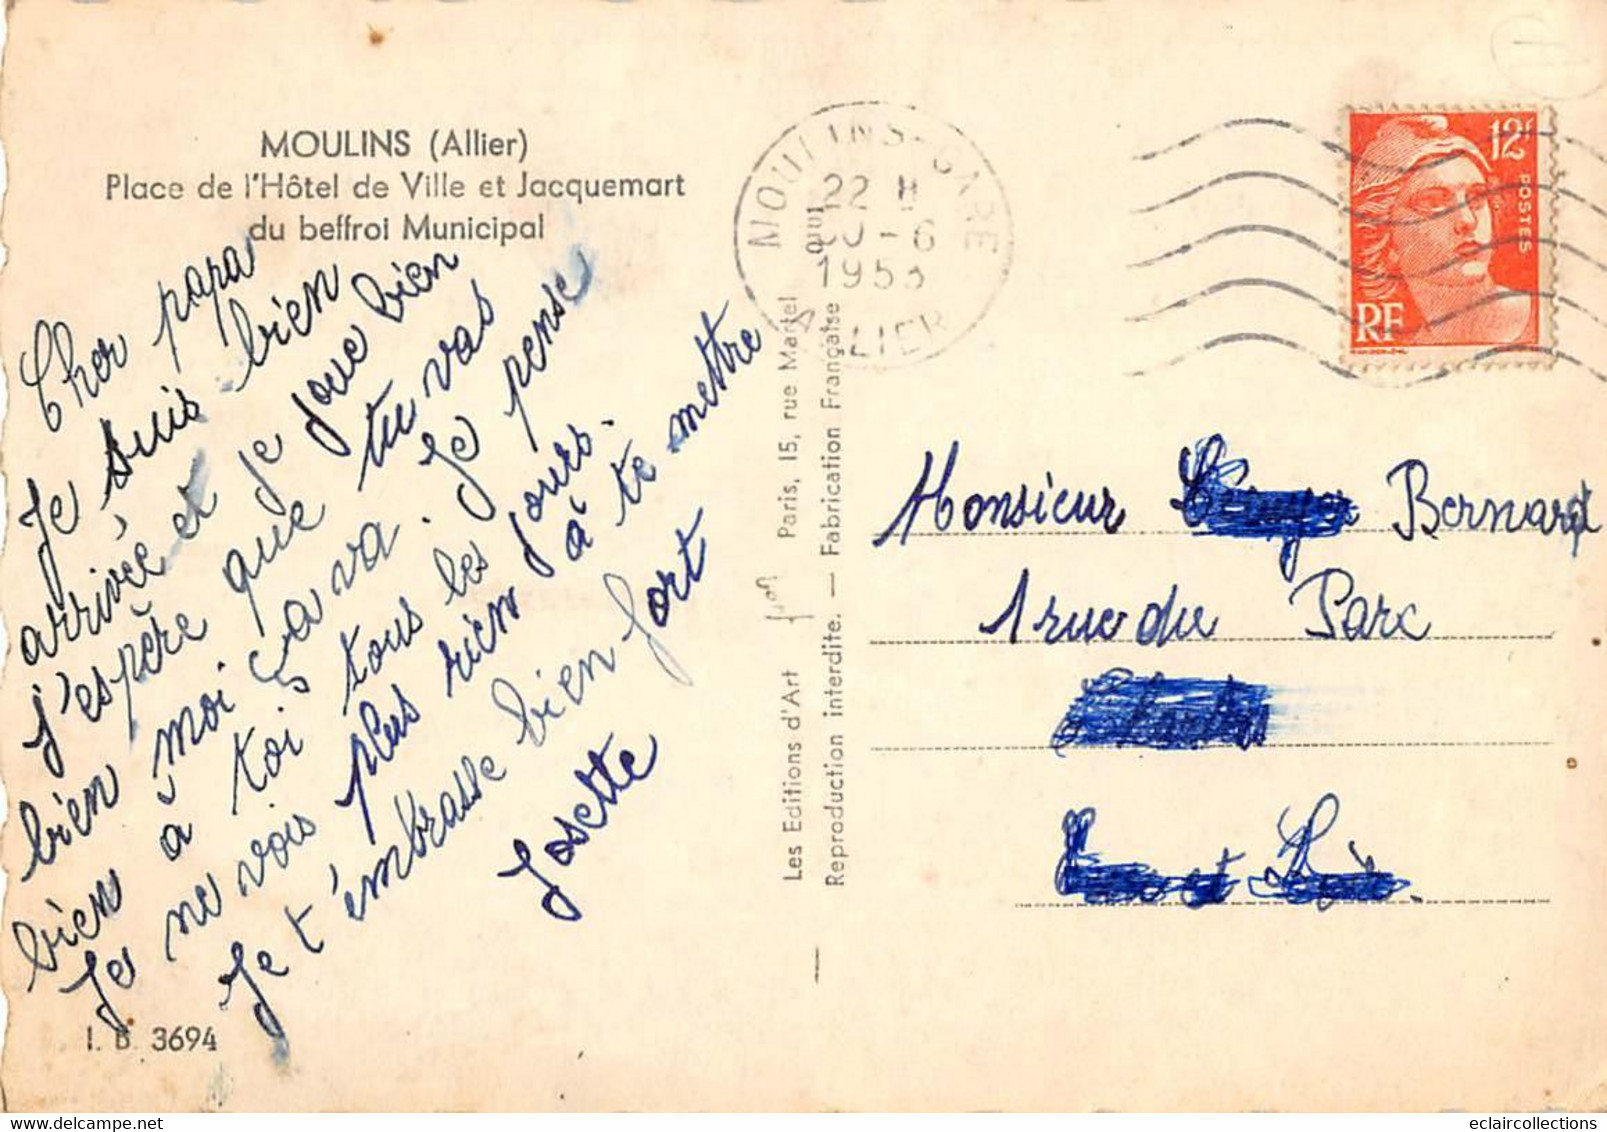 MOULINS (Allier)
Place de l'Hôtel de Ville et Jacquemart
du beffroi Municipal
Cher papa
Je suis bien
arrivée et je joue bien
J'espère que tu vas
bien moi ça va. Je pense
bien à toi tous les jours.
Je ne vois plus rien à te mettre
Je t'embrasse bien fort
Josette
I. B. 3694
Les Editions d'Art Paris, 15, rue Martel
Reproduction interdite. — Fabrication Française
MOULINS-GARE
22 H
-6
1953
ALLIER
12f
POSTES
RF
Monsieur Bernard
1 rue du Parc
et
11
eclaircollections